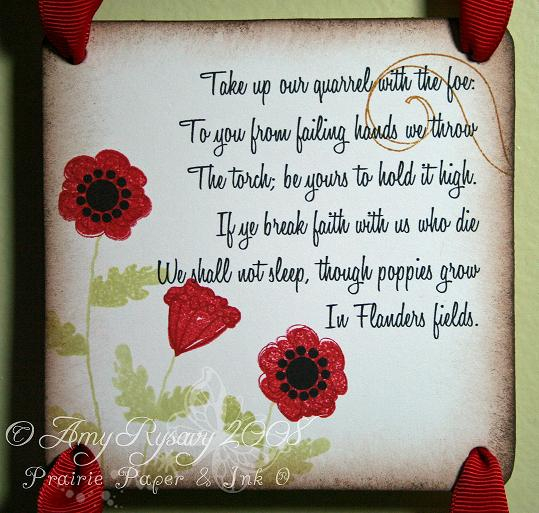 Take up our quarrel with the foe:
To you from failing hands we throw
The torch; be yours to hold it high.
If ye break faith with us who die
We shall not sleep, though poppies grow
In Flanders fields.
© Amy Rysavy 2008
Prairie Paper & Ink ©